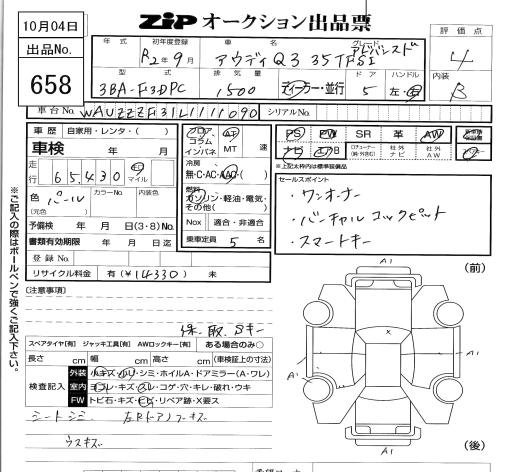 10月04日
ZIP オークション出品票
出品No.
658
年式 初年度登録 車名 グレード 評価点
R2年9月 アウディQ3 35TFSI アドバンスド 4
型式 排気量 ドア ハンドル 内装
3BA-F3DPC 1500 ディーラー・並行 5 左・右 B
車台No. WAUZZZF31L1111090 シリアルNo.
車歴 自家用・レンタ・( )
フロア コラム インパネ AT MT 速
PS PW SR 革 AW
車検 年 月
ナビ 社外ナビ 社外AW
※上記太枠内は標準装備品
走行 65,430 km マイル
冷房 無・C・AC・AAC・( )
セールスポイント
・ワンオーナー
・バーチャルコックピット
・スマートキー
色 パール (元色) カラーNo. 内装色
燃料 ガソリン・軽油・電気・その他( )
予備検 年 月 日(3・8)No.
Nox 適合・非適合
書類有効期限 年 月 日迄
乗車定員 5 名
登録No.
リサイクル料金 有(¥14330) 未
※ご記入の際はボールペンで強くご記入下さい。
[注意事項]
保、取、Sキー
スペアタイヤ[有] ジャッキ工具[有] AWロックキー[有] ある場合のみ○
長さ cm 幅 cm 高さ cm (車検証上の寸法)
検査記入
外装 小キズ・小凹・シミ・ホイルA・ドアミラー(A・ワレ)
室内 ヨゴレ・キズ・スレ・コゲ・穴・キレ・破れ・ウキ
FW トビ石・キズ・ヒビ・リペア跡・X要ス
シートシミ 左Rドア内キズ
ウスキズ
(前)
A1
A1
A1
×
A1
(後)